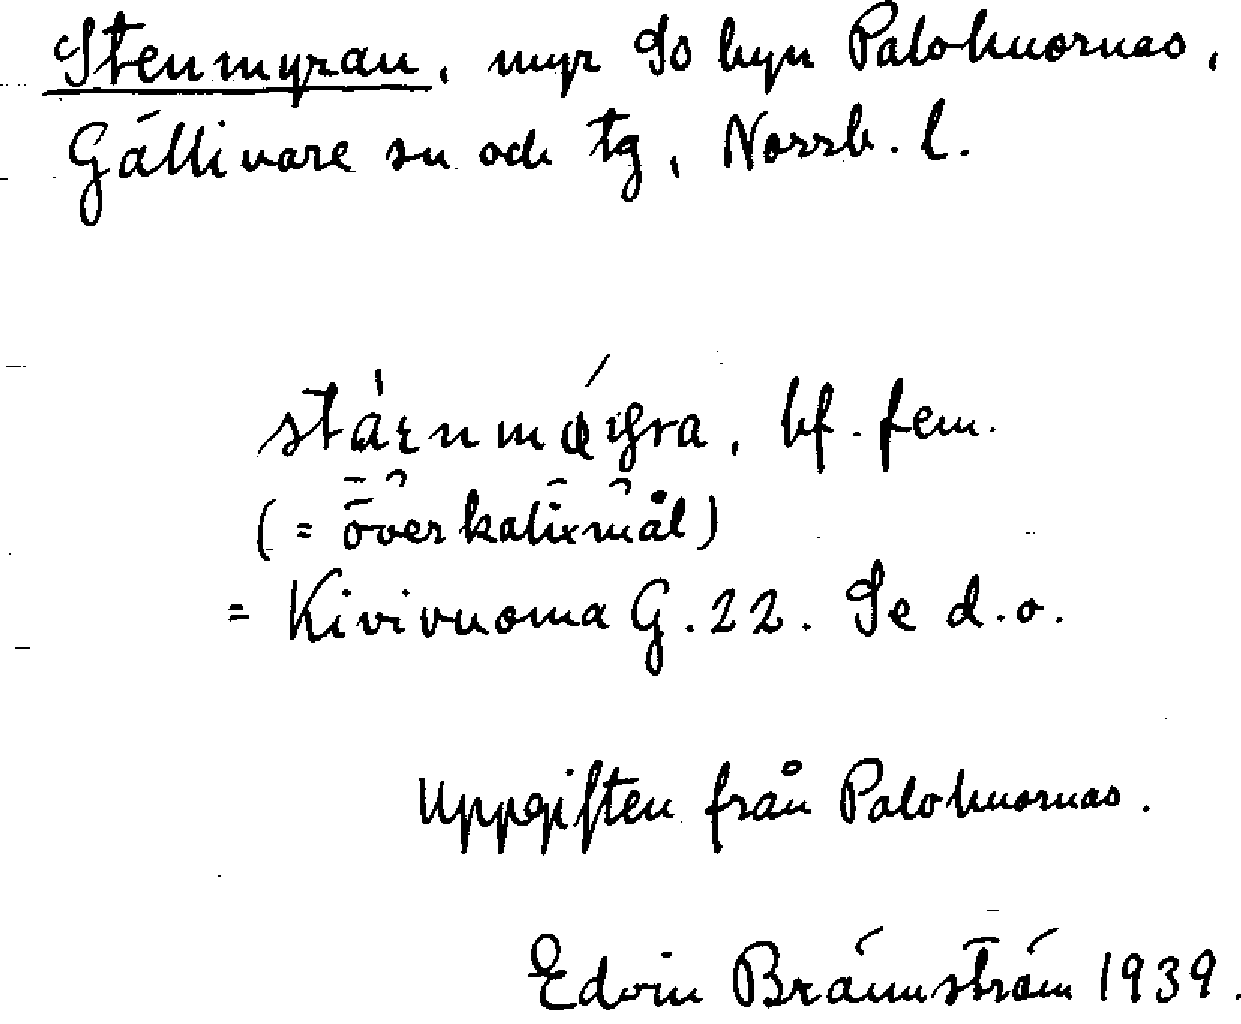 Stenmyran, myr SO byn Palohuornas,
Gällivare sn och tg, Norrb. l.
bf. fem.
(= överkalixmål)
= Kivivuoma G.22. Se d.o.
Uppgiften från Palohuornas.
Edvin Brännström 1939.